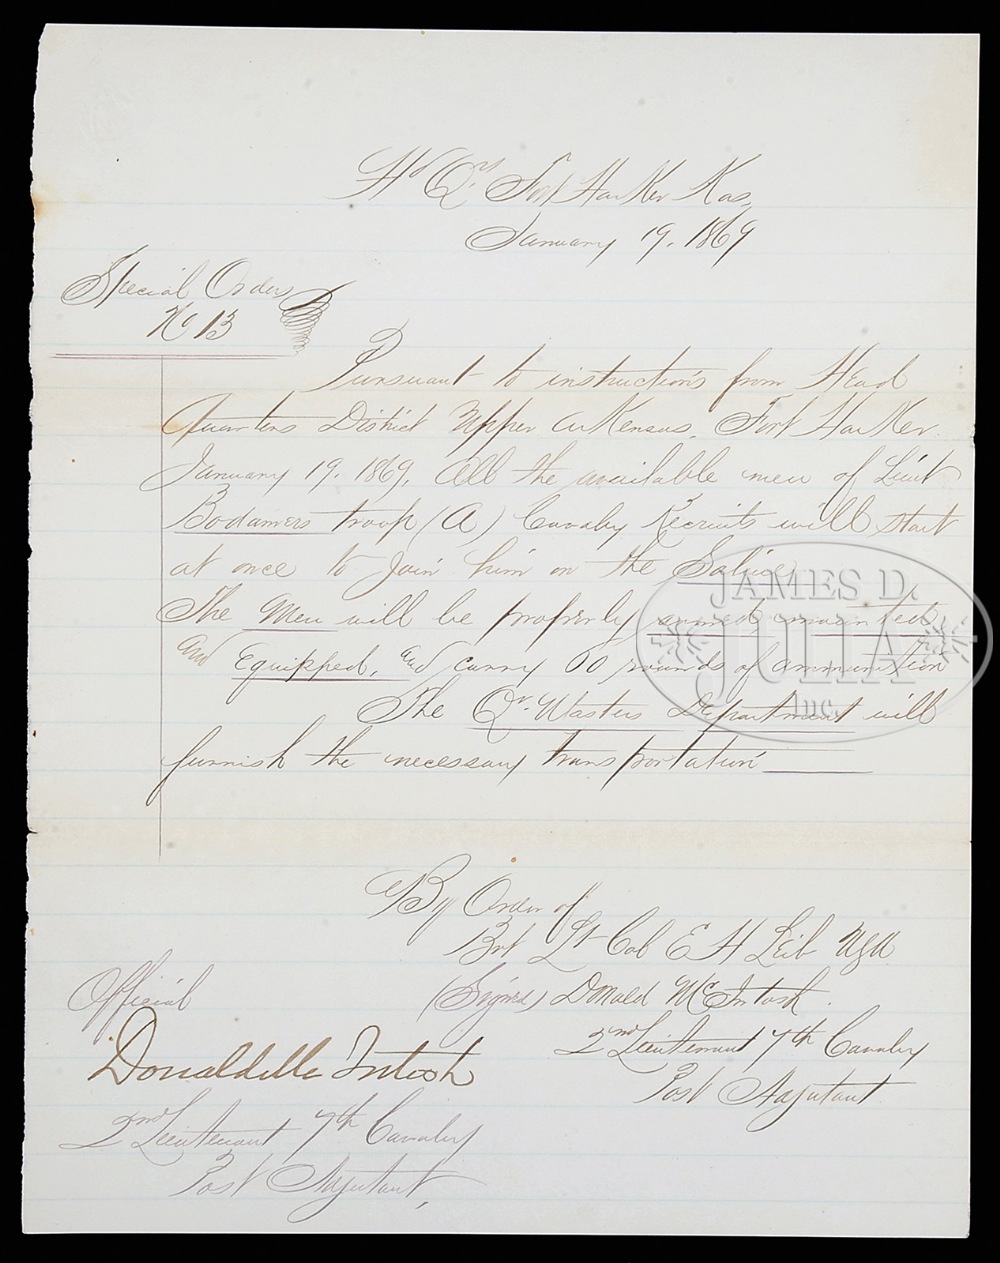 Hd Qrs Fort Harker Kas,
January 19. 1869
Special Orders
No 13
Pursuant to instructions from Head
Quarters District Upper Arkansas, Fort Harker
January 19, 1869, All the available men of Lieut
Bodamers troop (A) Cavalry Recruits will start
at once to join him on the Saline,
The Men will be properly armed mounted
and Equipped, and carry 60 rounds of ammunition
The Qr. Masters Department will
furnish the necessary transportation
By Order of
Bvt Lt Col E H Leib USA
Official
(Signed) Donald McIntosh.
2nd Lieutenant 7th Cavalry
Post Adjutant
Donald McIntosh
2nd Lieutenant 7th Cavalry
Post Adjutant,
JAMES D.
JULIA
Inc.